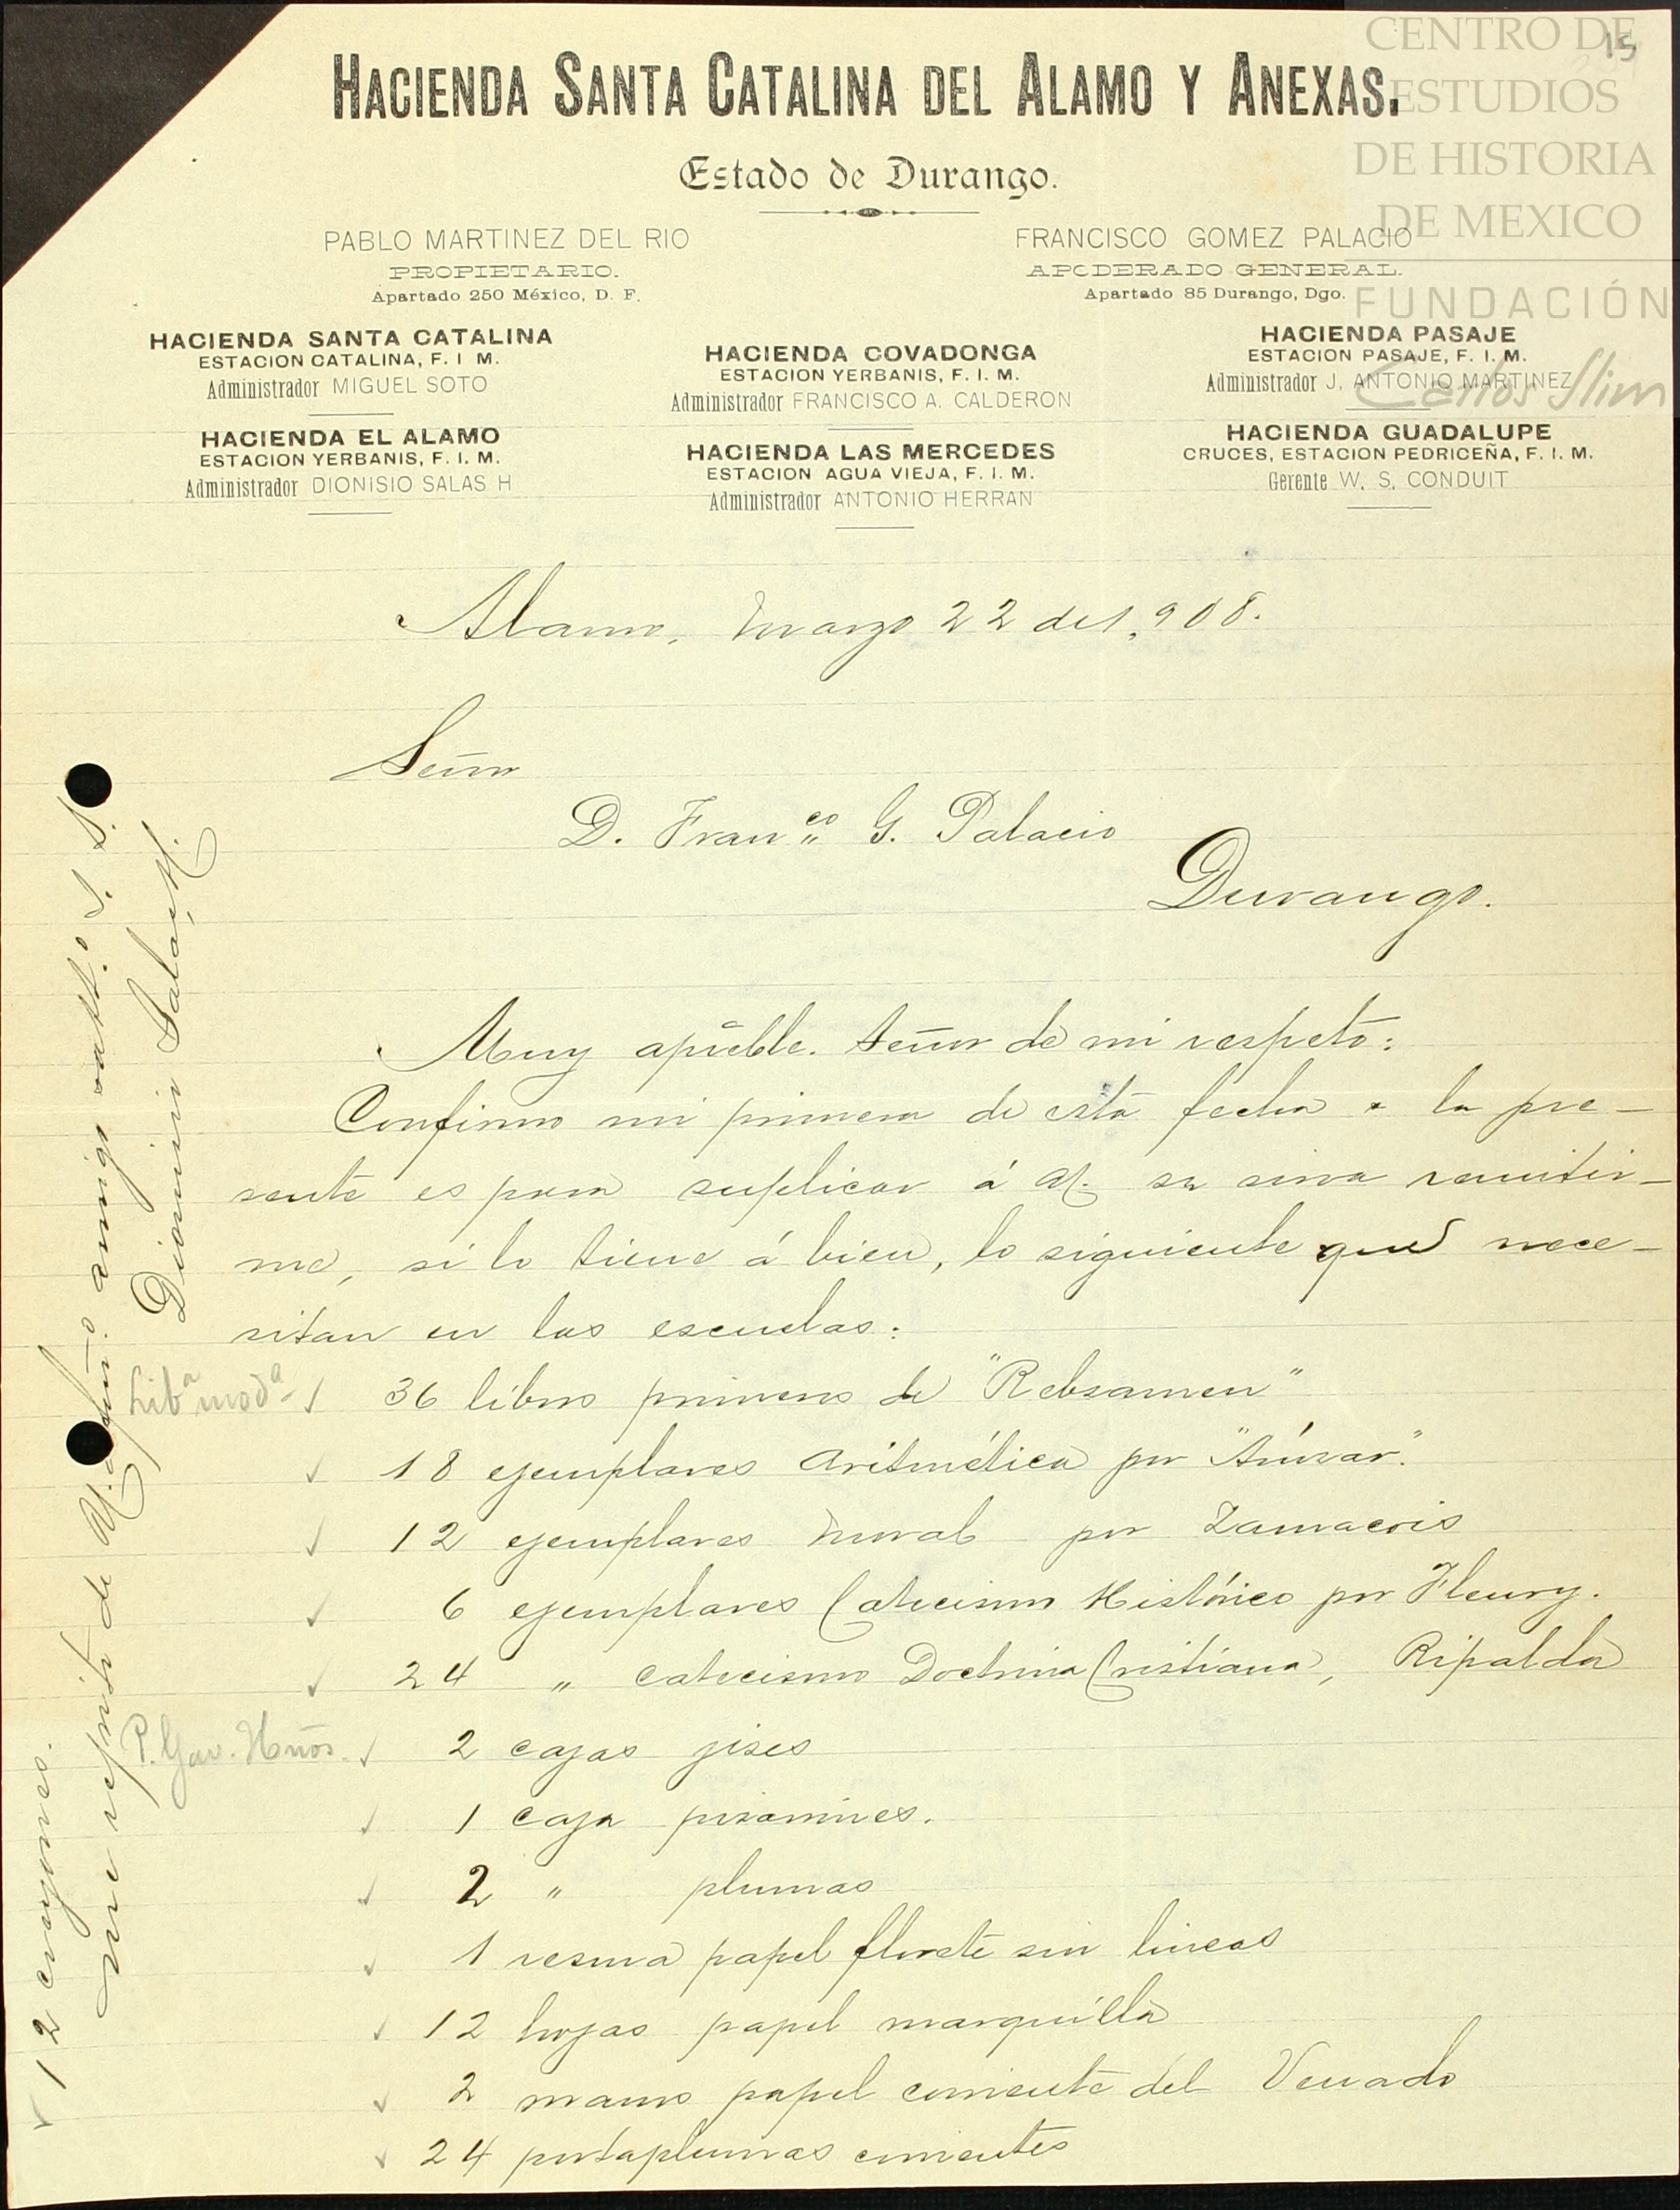 CENTRO DE
ESTUDIOS
DE HISTORIA
DE MEXICO
FUNDACIÓN
Carlos Slim
15
HACIENDA SANTA CATALINA DEL ALAMO Y ANEXAS.
Estado de Durango.
PABLO MARTINEZ DEL RIO
PROPIETARIO.
Apartado 250 México, D. F.
FRANCISCO GOMEZ PALACIO
APODERADO GENERAL.
Apartado 85 Durango, Dgo.
HACIENDA SANTA CATALINA
ESTACION CATALINA, F. I M.
Administrador MIGUEL SOTO
HACIENDA EL ALAMO
ESTACION YERBANIS, F. I. M.
Administrador DIONISIO SALAS H
HACIENDA COVADONGA
ESTACION YERBANIS, F. I. M.
Administrador FRANCISCO A. CALDERON
HACIENDA LAS MERCEDES
ESTACION AGUA VIEJA, F. I. M.
Administrador ANTONIO HERRAN
HACIENDA PASAJE
ESTACION PASAJE, F. I. M.
Administrador J. ANTONIO MARTINEZ
HACIENDA GUADALUPE
CRUCES, ESTACION PEDRICEÑA, F. I. M.
Gerente W. S. CONDUIT
Alamo, Marzo 22 de 1,908.
Señor
D. Fran.co G. Palacio
Durango.
Muy apreble. Señor de mi respeto:
Confirmo mi primera de esta fecha y la pre-
sente es para suplicar á Ud. se sirva remitir-
me, si lo tiene á bien, lo siguiente que nece-
sitan en las escuelas:
Liba moda ✓ 36 libros primeros de "Rebsamen"
✓ 18 ejemplares Aritmética por
✓ 12 ejemplares Moral por Zamacois
✓ 6 ejemplares Catecismo Histórico por Fleury.
✓ 24 " Catecismo Doctrina Cristiana, Ripalda
P. Gav. Hnos. ✓ 2 cajas jises
✓ 1 caja pisarrines.
✓ 2 " plumas
✓ 1 resma papel florete sin lineas
✓ 12 hojas papel marquilla
✓ 2 manos papel corriente del Venado
✓ 24 portaplumas corrientes
✓ 12 crayones.
me repito de Ud. afmo. amigo atto. S. S.
Dionisio Salas H.